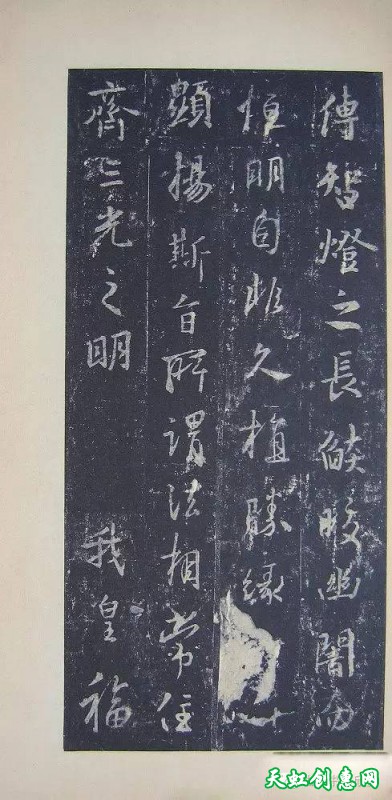 傳智燈之長燄皎幽闇而
恒明自非久植勝緣
顯揚斯旨所謂法相常住
齊三光之明 我皇福
天虹创惠网